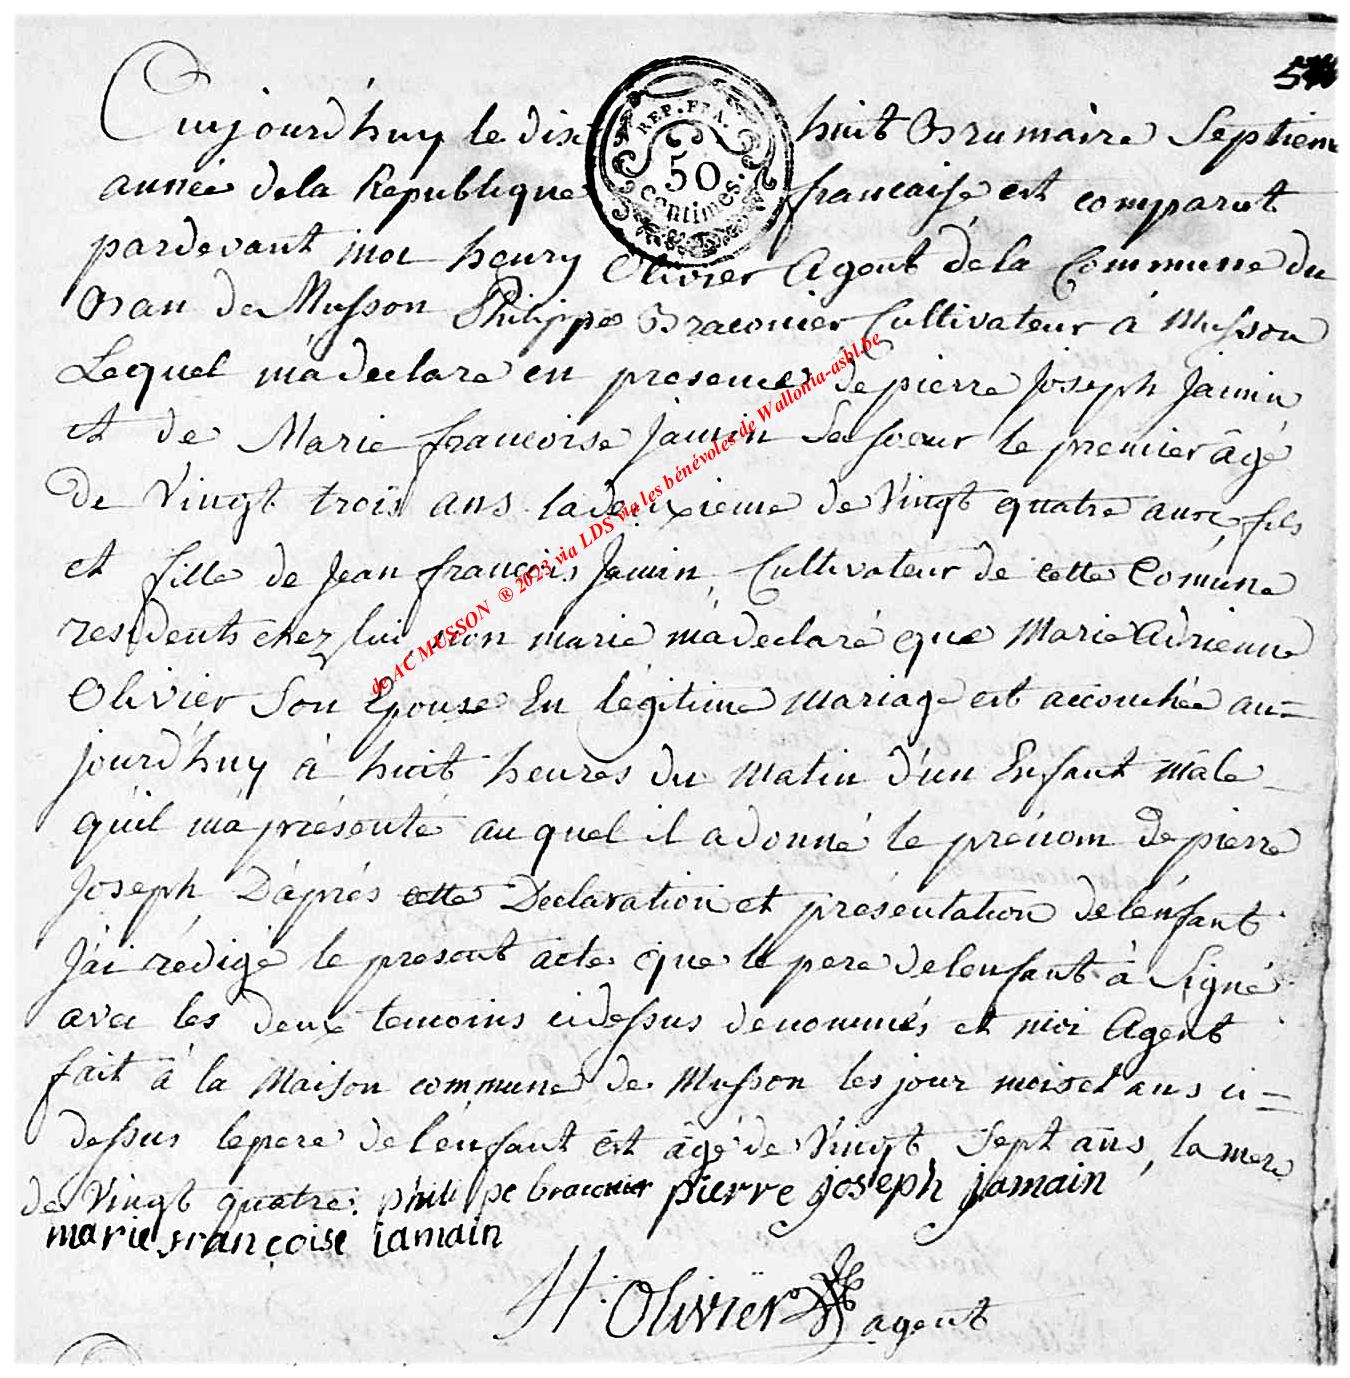 5
Aujourd'huy le dix huit Brumaire Septieme
REP. FRA.
50
centimes.
année dela Republique francaise est comparut
pardevant moi henry Olivier Agent déla Commune du
Ban de Musson Philippe Braconier Cultivateur à Musson
Lequel m'a declare en presence de pierre Joseph Jamin
et de Marie francoise Jamin Sa soeur le premier âgé
de Vingt trois ans la deuxieme de Vingt quatre ans, fils
et fille de Jean françois Jamin, Cultivateur de cette Comune
residents chez lui, non marié m'a declaré que Marie Adrienne
Olivier Son Epouse En légitime Mariage est accouchée au=
jourd'huy à huit heures du Matin d'un Enfant mâle
qu'il m'a présenté auquel il a donné le prénom de pierre
Joseph D'après cette Déclaration et présentation de l'énfant
J'ai rédigé le present acte que le pere de lenfant à Signé
avec les deux temoins ci dessus denommés et moi Agent
fait à la Maison commune de Musson les jour mois et ans ci=
dessus le pere de l'énfant est âgé de Vingt Sept ans, la mere
de Vingt quatre. philipe braconier pierre joseph jamain
marie françoise iamain
H. Olivier agent
de AC MUSSON ® 2023 via LDS via les bénévoles de Wallonia-asbl.be